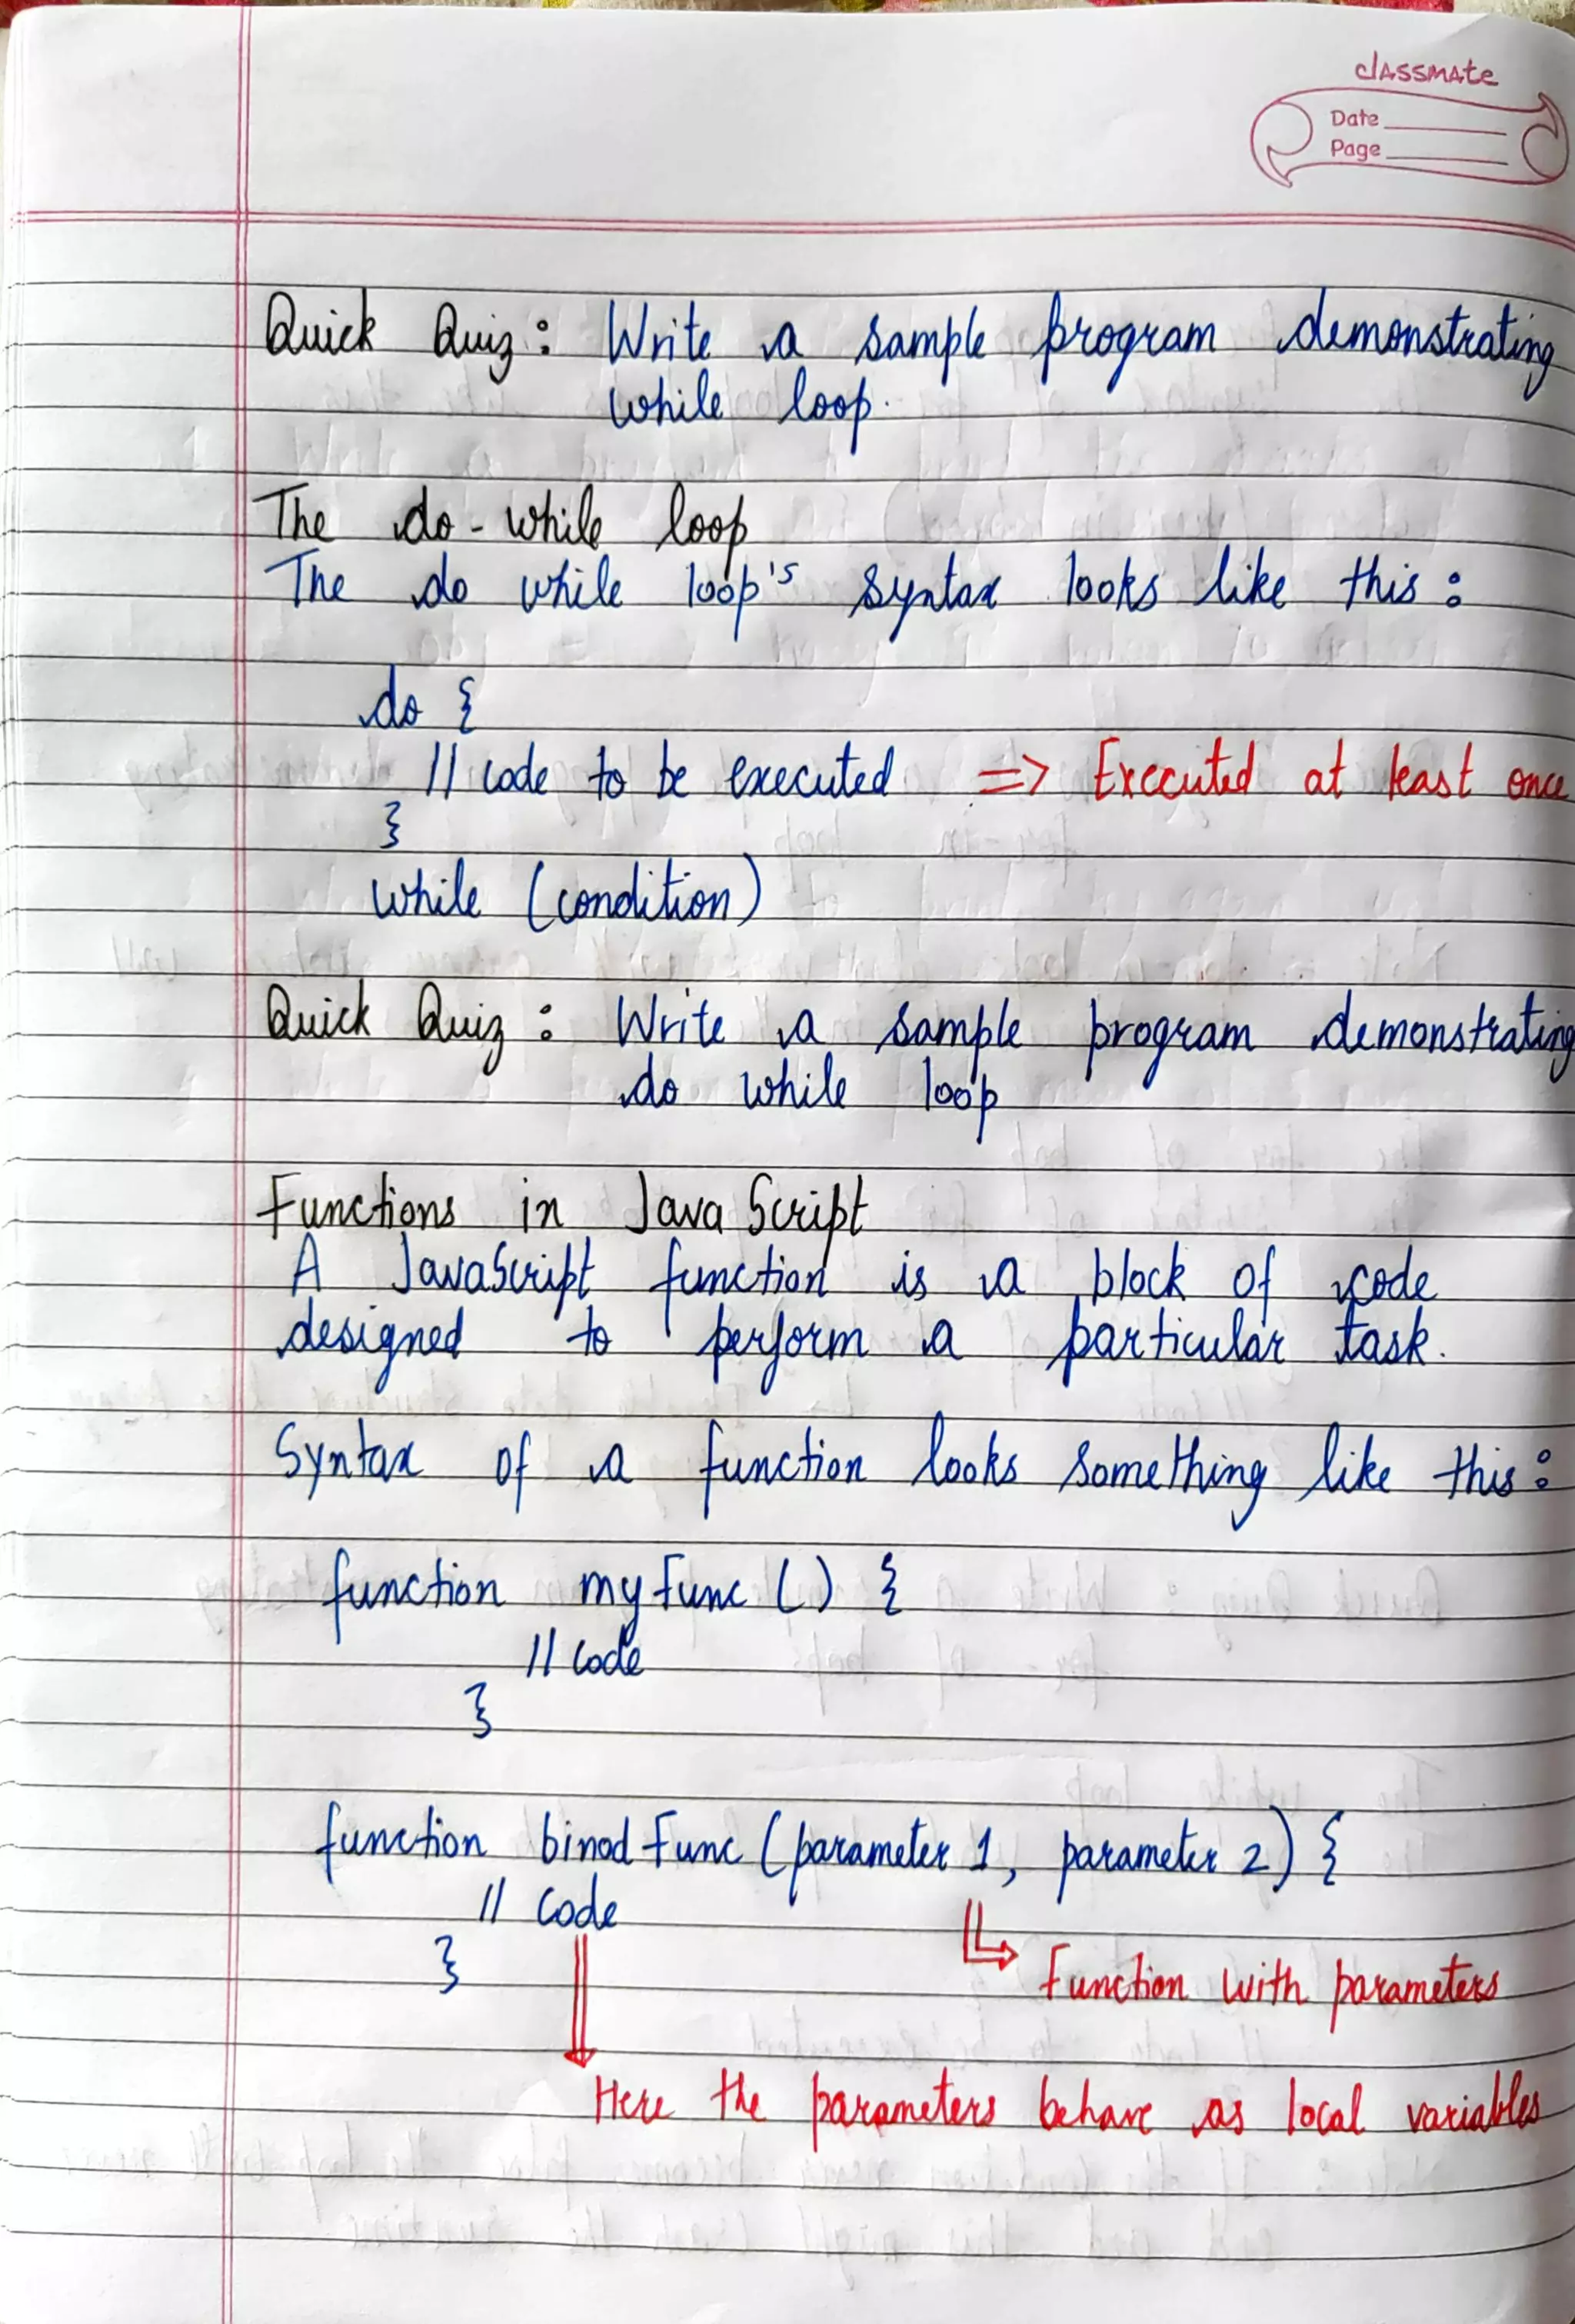 classmate
Date
Page
Quick Quiz : Write a sample program demonstrating
while loop.
The do-while loop
The do while loop's syntax looks like this :
do {
// code to be executed => Executed at least once
}
while (condition)
Quick Quiz : Write a sample program demonstrating
do while loop
Functions in JavaScript
A JavaScript function is a block of code
designed to perform a particular task.
Syntax of a function looks something like this :
function myFunc () {
// code
}
function binodFunc (parameter 1, parameter 2) {
// code
}
Function with parameters
Here the parameters behave as local variables